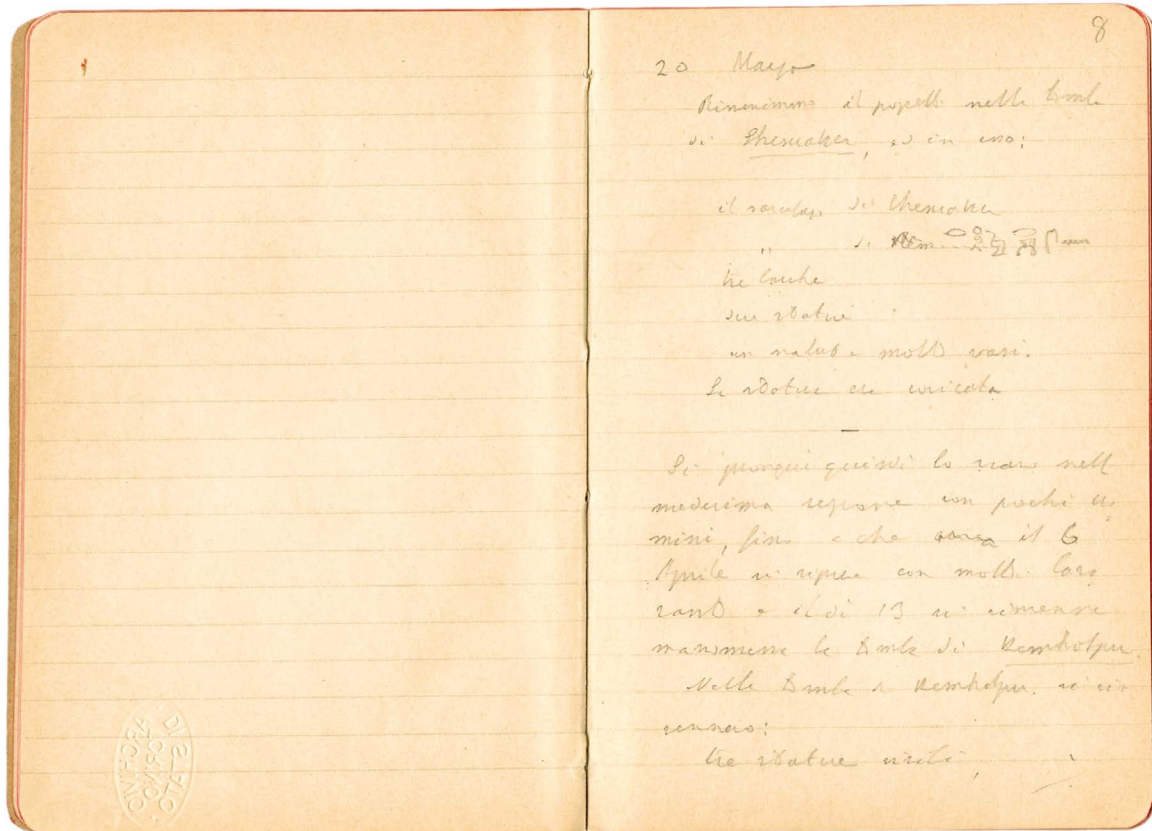 8
20 Marzo
Rinvenimmo il pozzetto nella tomba
di Shemaker, ed in esso:
il sarcofago di Shemaker
" di Rem
tre barche
due statue
un naluto e molti vasi.
La statua era coricata
—
Si prosegui quindi lo scavo nella
medesima regione con pochi uo
mini, fino a che il 6
Aprile si riprese con molti lavo
ranti e il di 13 si rinvenne
manomessa la tomba di Remhotpu.
Nella tomba di Remhotpu si rin
vennero:
tre statue virili,
ARCHIVIO
DI STATO
TORINO